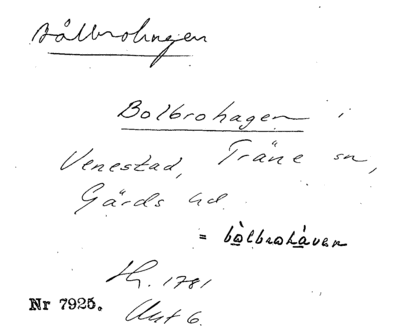 Bålbrohagen
Bolbrohagen i
Venestad, Träne sn,
Gärds hd
= bòlbrohàven
Hr. 1781
Nr 7925.
Akt 6.